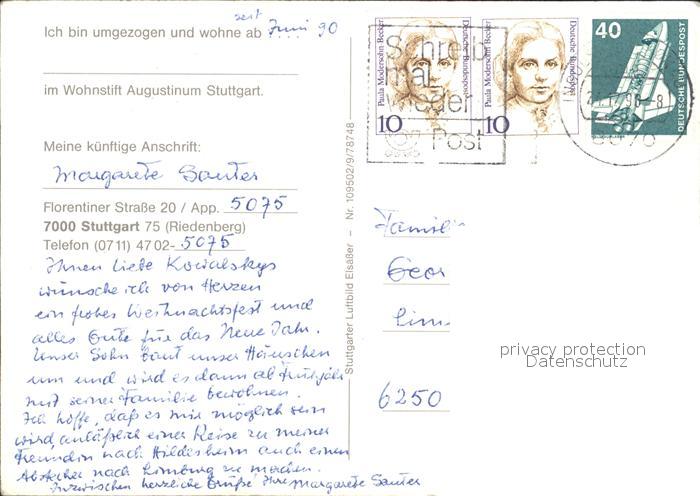 seit
Ich bin umgezogen und wohne ab Juni 90
im Wohnstift Augustinum Stuttgart.
Meine künftige Anschrift:
Margarete Sauter
Florentiner Straße 20 / App. 5075
7000 Stuttgart 75 (Riedenberg)
Telefon (0711) 4702- 5075
Ihnen liebe Kowalskys
wünsche ich von Herzen
ein frohes Weihnachtsfest und
alles Gute für das Neue Jahr.
Unser Sohn baut unser Häuschen
um und wird es dann ab Frühjahr
mit seiner Familie bewohnen.
Ich hoffe, daß es mir möglich sein
wird, anläßlich einer Reise zu meiner
Freundin nach Hildesheim auch einen
Abstecher nach Limburg zu machen.
Inzwischen herzliche Grüße Ihre Margarete Sauter
Stuttgarter Luftbild Elsäßer – Nr. 109502/9/78748
Paula Modersohn-Becker
Deutsche Bundespost
10
Paula Modersohn-Becker
Deutsche Bundespost
10
40
DEUTSCHE BUNDESPOST
Schreib
mal
wieder
Post
Famili
Geor
Lim
6250
privacy protection
Datenschutz